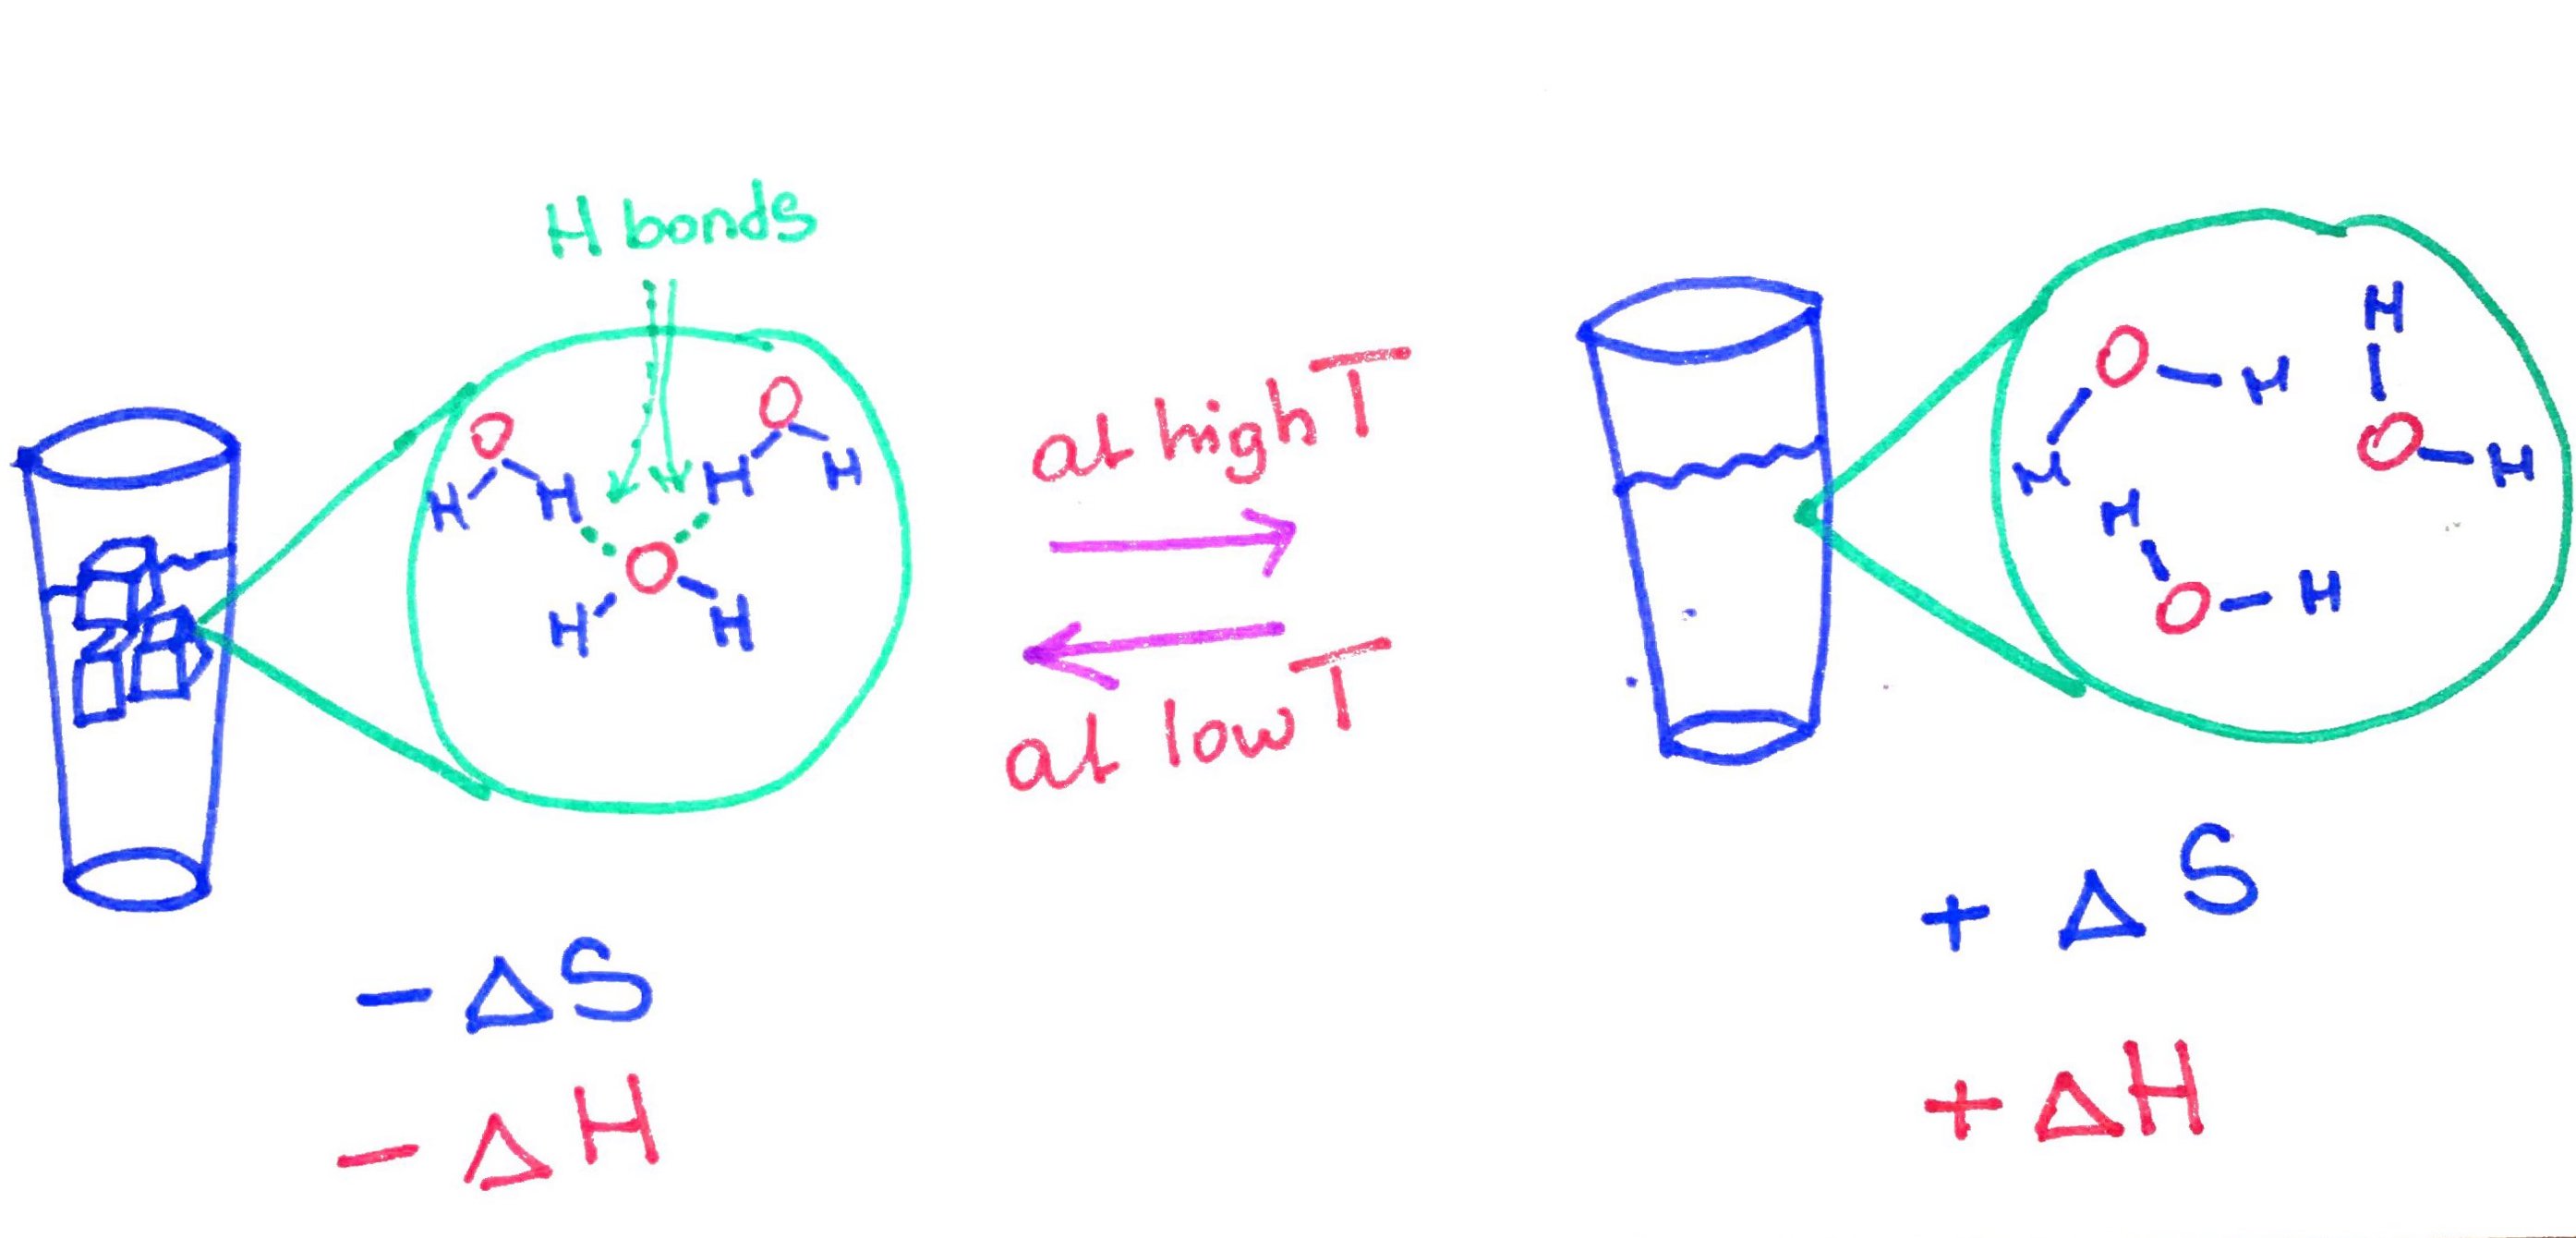 H bonds
O
H H
O
H H
O
H H
at high T
at low T
- ΔS
- ΔH
O H
H
H
O H
H
O H
+ ΔS
+ ΔH